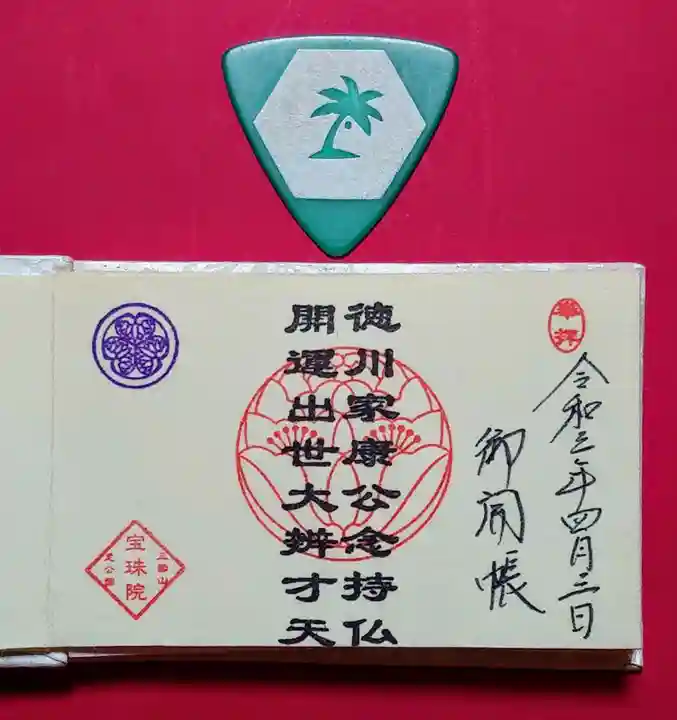 奉拝
令和三年四月三日
御開帳
徳川家康公念持仏
開運出世大辨才天
三縁山
宝珠院
芝公園